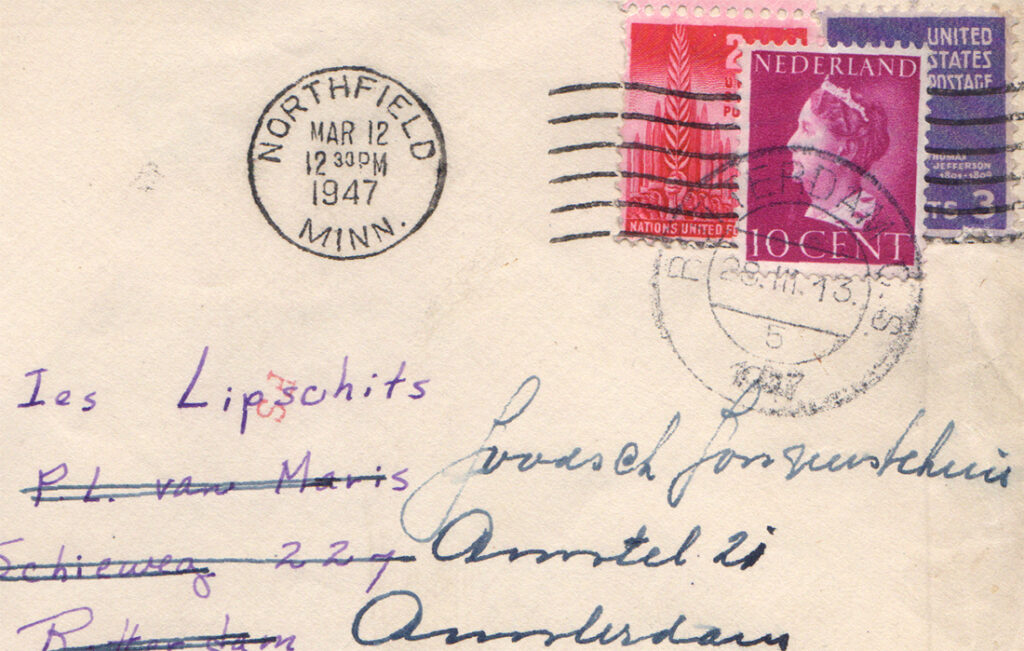 NORTHFIELD
MAR 12
12 30 PM
1947
MINN.
2
NATIONS UNITED F
NEDERLAND
10 CENT
UNITED
STATES
POSTAGE
JEFFERSON
1801-1809
3
28.III.13.
5
1947
Ies Lipschits
P.L. van Maris
Schieweg 227
Rotterdam
Joodsch Jongenstehuis
Amstel 21
Amsterdam